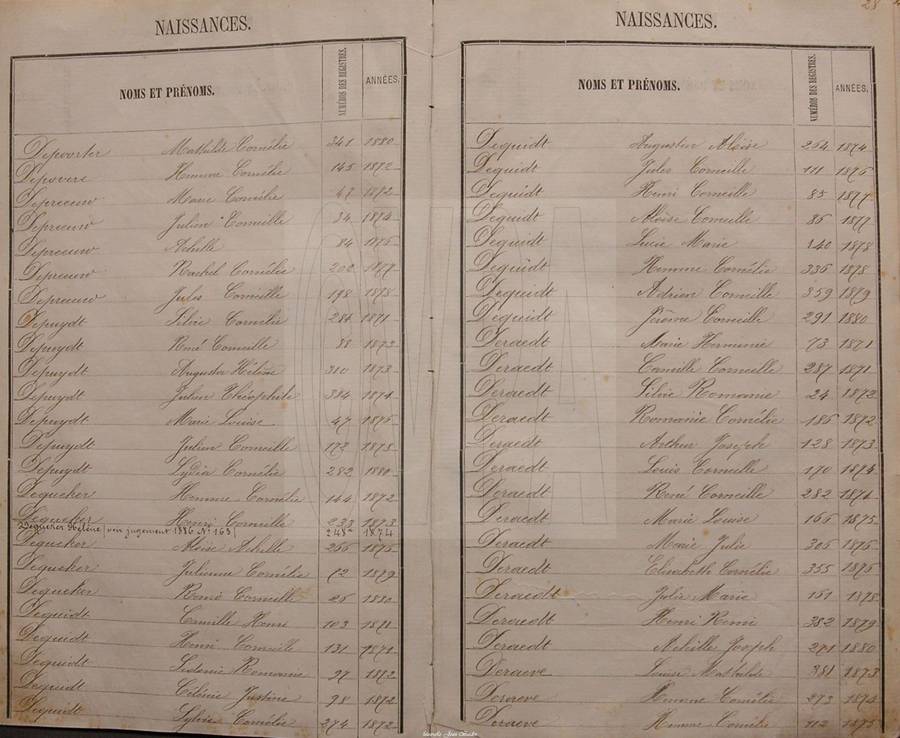 NAISSANCES.
NOMS ET PRÉNOMS. NUMÉROS DES REGISTRES. ANNÉES.
Depoorter Mathilde Cornélie 341 1880
Depovere Hemma Cornélie 145 1872
Depreeuw Marie Cornélie 47 1872
Depreeuw Julien Corneille 34 1874
Depreeuw Achille 84 1876
Depreeuw Rachel Cornélie 202 1877
Depreeuw Jules Corneille 198 1878
Depuydt Silvie Cornélie 284 1871
Depuydt René Corneille 38 1872
Depuydt Augusta Hélène 310 1873
Depuydt Julien Théophile 384 1874
Depuydt Marie Louise 47 1876
Depuydt Julien Corneille 172 1878
Depuydt Lydia Cornélie 282 1880
Dequeker Hemma Cornélie 144 1872
Dequeker Henri Corneille 233 1873
Dequeker Hélène (voir jugement 1886 N° 163) 248 1874
Dequeker Aloïse Achille 266 1876
Dequeker Julienne Cornélie 12 1879
Dequeker René Corneille 26 1880
Dequidt Camille Henri 103 1871
Dequidt Henri Corneille 131 1871
Dequidt Sidonie Romanie 97 1872
Dequidt Célinie Justine 98 1872
Dequidt Sylvie Cornélie 274 1872
28
NAISSANCES.
NOMS ET PRÉNOMS. NUMÉROS DES REGISTRES. ANNÉES.
Dequidt Augustin Aloïse 264 1874
Dequidt Jules Corneille 111 1876
Dequidt Henri Corneille 85 1877
Dequidt Aloïse Corneille 86 1877
Dequidt Lucie Marie 140 1878
Dequidt Hemma Cornélie 336 1878
Dequidt Adrien Corneille 359 1879
Dequidt Jérôme Corneille 291 1880
Deraedt Marie Herminie 73 1871
Deraedt Camille Corneille 287 1871
Deraedt Silvie Romanie 24 1872
Deraedt Romanie Cornélie 186 1872
Deraedt Arthur Joseph 128 1873
Deraedt Louis Corneille 170 1874
Deraedt René Corneille 282 1874
Deraedt Marie Louise 166 1875
Deraedt Marie Julie 306 1876
Deraedt Elisabeth Cornélie 355 1876
Deraedt Julie Marie 161 1878
Deraedt Henri Remi 382 1879
Deraedt Achille Joseph 271 1880
Deraeve Louise Mathilde 381 1873
Deraeve Hemma Cornélie 273 1874
Deraeve Hemma Cornélie 112 1875